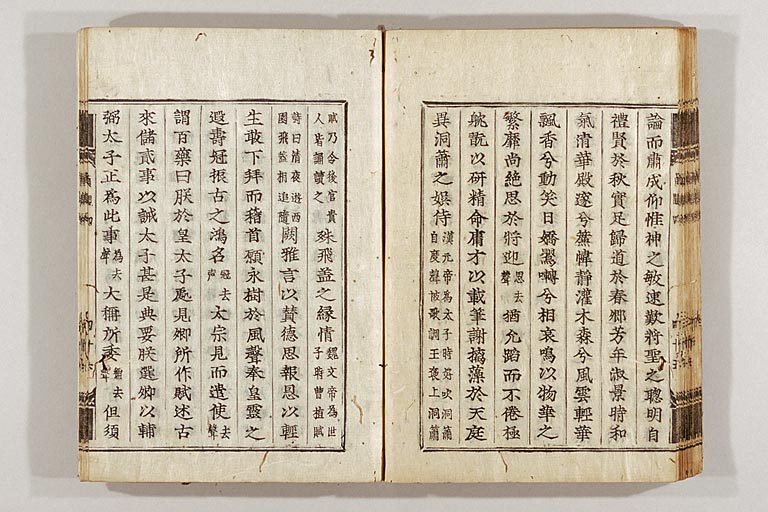 論而肅成仰惟神之敏速歎將聖之聰明自
禮賢於秋實足歸道於春卿芳年淑景時和
氣清華殿邃兮簾幃靜灌木森兮風雲輕華
飄香兮動笑日嬌鶯囀兮相哀鳴以物華之
繁靡尚絕思於將迎思去聲猶允蹈而不倦極
耽翫以研精命庸才以載筆謝摛藻於天庭
異洞蕭之娛侍漢元帝為太子時好吹洞簫自度聲被歌調王褒上洞簫
賦乃令後宮貴人皆誦讀之殊飛蓋之緣情魏文帝為世子時曹植賦
詩曰清夜遊西園飛蓋相追隨闕雅言以贊德思報恩以輕
生敢下拜而稽首願永樹於風聲奉皇靈之
遐壽冠振古之鴻名冠去声太宗見而遣使去聲
謂百藥曰朕於皇太子處見卿所作賦述古
來儲貳事以誡太子甚是典要朕選卿以輔
弼太子正為此事為去聲大稱所委稱去聲但須